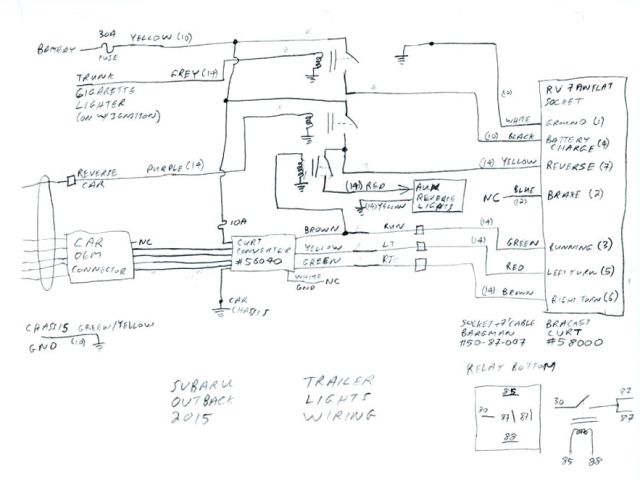 BATTERY
30A
FUSE
YELLOW (10)
TRUNK GREY (14)
CIGARETTE
LIGHTER
(ON W/IGNITION)
REVERSE PURPLE (14)
CAR
RV 7 AN FLAT
SOCKET
(10)
WHITE GROUND (1)
(10) BLACK BATTERY
CHARGE (4)
(14) YELLOW REVERSE (7)
NC BLUE BRAKE (2)
(12)
(14) RED
(14) YELLOW
AUX
REVERSE
LIGHTS
10A
CAR
OEM
CONNECTOR
NC
CURT
CONVERTER
#56040
BROWN RUN (14)
YELLOW LT (14)
GREEN RT
WHITE
GND NC
GREEN RUNNING (3)
RED LEFT TURN (5)
(14) BROWN RIGHT TURN (6)
CAR
CHASSIS
CHASSIS GREEN/YELLOW
GND (10)
SOCKET + 7' CABLE
BARGMAN
#50-87-007
BRACKET
CURT
#58000
SUBARU TRAILER
OUTBACK LIGHTS
2015 WIRING
RELAY BOTTOM
85
30 87 87
88
30
87
87
85 88